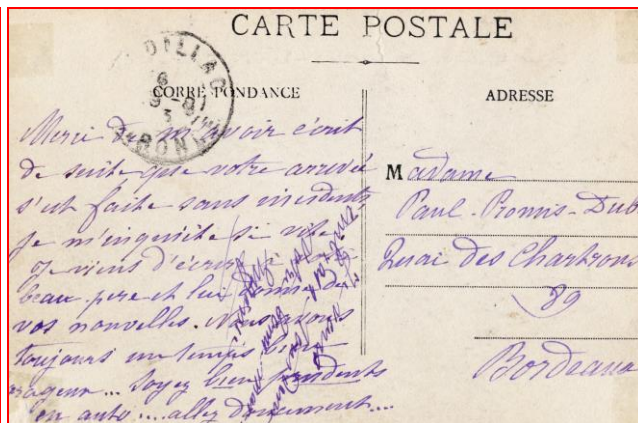 CARTE POSTALE
CORRESPONDANCE
ADRESSE
Merci de m'avoir écrit
de suite que votre arrivée
s'est faite sans incidents
je m'inquiète si vite
Je viens d'écrire
beau père et lui donne de
vos nouvelles. Nous avons
toujours un temps
orageux... Soyez bien prudents
en auto.... allez doucement...
Madame
Paul-Promis-Dub
Quai des Chartrons
89
Bordeaux